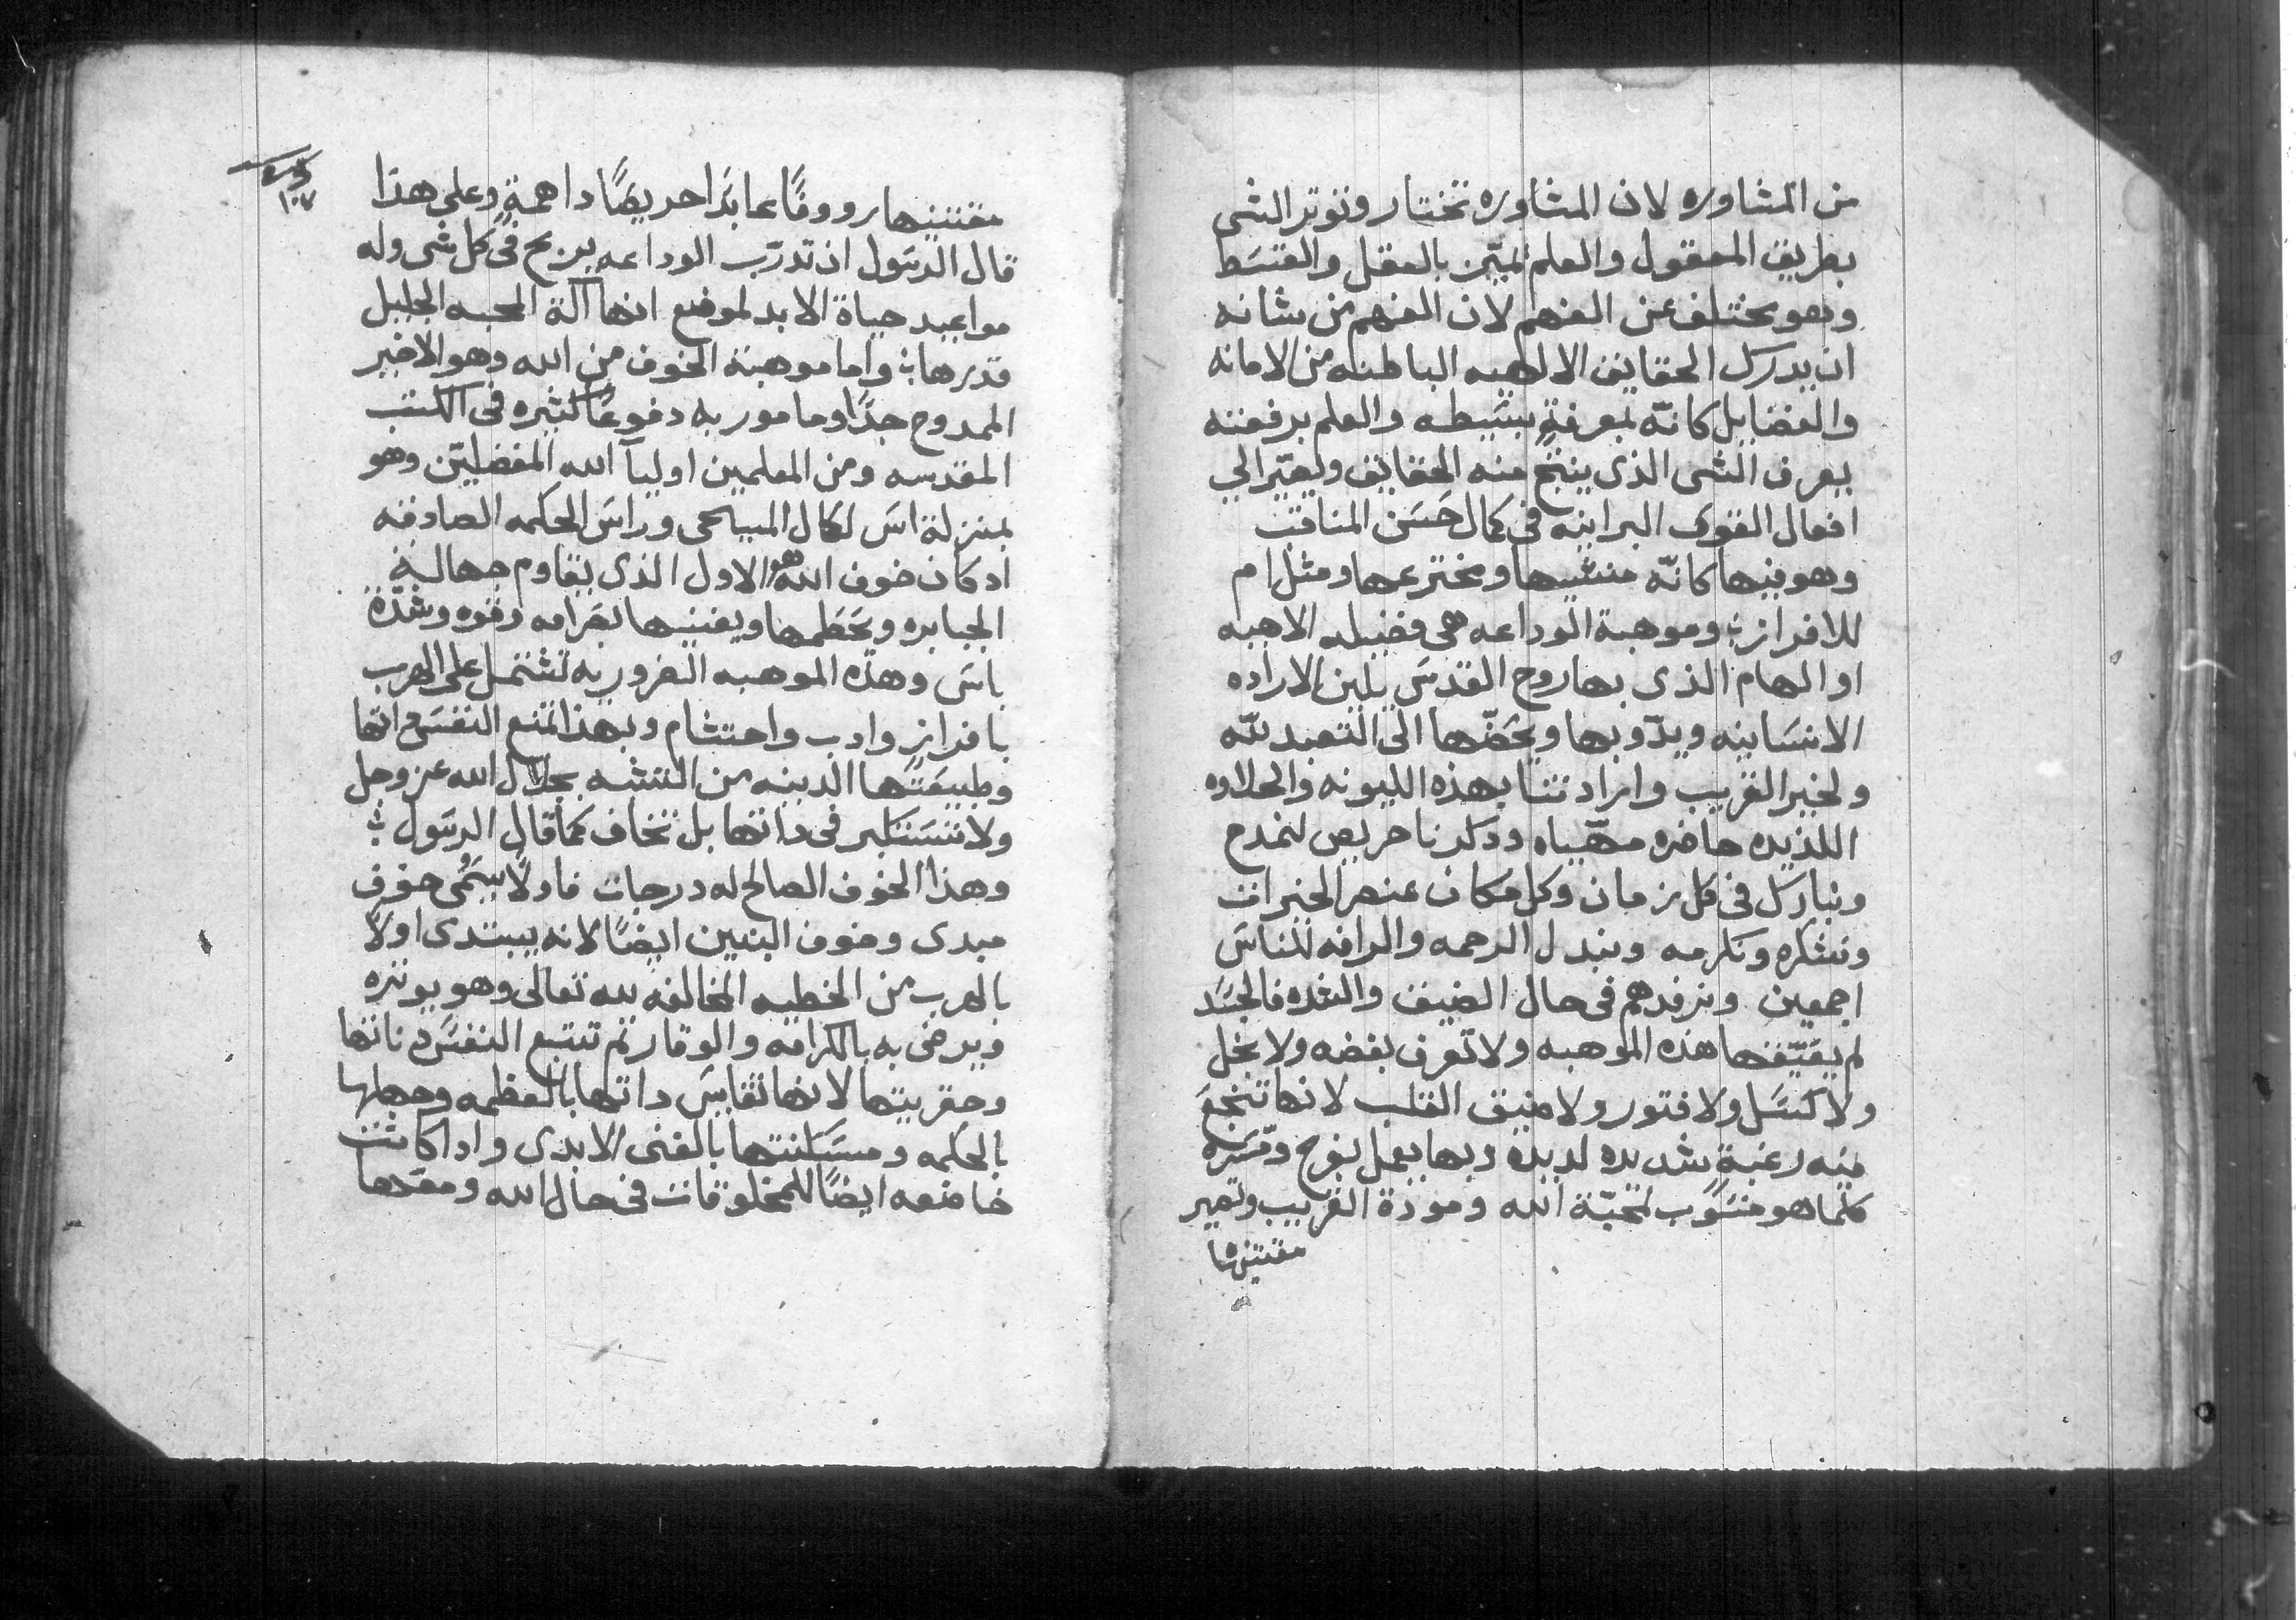 من المشاوره لان المشاوره تختار وتوتر الشى
بطريق المعقول والعلم تميّن بالعقل والقسَط
وهو يختلف عن الفهم لان الفهم من شانه
ان يدرك الحقايق الالهيه الباطنه من الامانه
والفضايل كانّه بمعرفةٍ بسَيطه والعلم برفعته
يعرف الشى الذى ينتج منه الحقايق ويعبّر الي
افعال القوى البرانيه فى كمال حَسَن المناقب
وهو فيها كانّه منشيها ومخترعها ومثل ام
للافراز ؛ وموهبة الوداعه هى فضيله الاهيه
او الهام الذى بها روح القدسَ يلين الاراده
الانسَانيه ويدّوبها ويحَضّها الى التعبد للّه
ولخير القريب وارادتنا بهذه الليونه والحلاوه
اللذيده حاضره مهّياه ودكرنا حريص لنمدح
ونبارك فى كل زمان وكل مكان عنصر الخيرات
ونشكره ونكرمه ونبدل الرحمه والرافه للناسَ
اجمعين ونرفدهم فى حال الضيق والشده فالجسَد
لم يعَيّفها هذه الموهبه ولا تعرف بغضه ولا بخل
ولا كسَل ولا فتور ولا ضيق القلب لانها تنجعَ
منه رغبةٍ شديده لديده وبها يعمل بفرح ومَسَره
كلما هو منسَوب لمحبّة الله ومودة القريب وتصير
مقتنيها
مقتنيها رووفًا عابدَا حريصًا دا همةٍ وعلى هذا
قال الرسَول ان تدرّب الوداعه يربح فى كل شى وله
مواعيد حياة الابد لموضع انها آلة المحبه الجليل
قدرها ؛ واما موهبة الخوف من الله وهو الاخير
الممدوح جدًا ومامور به دفوعًا كثيره فى الكتب
المقدسه ومن المعلمين اوليآ الله المفضليّن وهو
بمنزلة اسَ لكمال المسيحى وراسَ الحكمه الصادقه
اد كان خوف الله هو الاول الذى يقاوم جهالة
الجبابره ويحَطمها ويفنيها بصَرامه وقوه وشدّة
باسَ وهذه الموهبه الضروريه تشتمل على الهرب
بافراز وادب واحتشام وبهذا تمنع النفسَ اتها
وطبيعَتها الدينه من التشبه بجلال الله عز وجل
ولا تسَتكبر فى داتها بل تخاف كما قال الرسَول ؛
وهذا الخوف الصالح له درجات فاولاً يسَمُى خوف
مبدى وخوف البنين ايضًا لانه يبتدى اولاً
بالهرب من الخطيه المخالفه لله تعالى وهو يوتره
ويرضى به بالكرامه والوقار تم تتبع النفسَ دناتها
وحقريتها لانها تقايسَ داتها بالعظمه وجهلها
بالحكمه ومسَكنتها بالغنى الابدى وادا كانت
خاضعه ايضًا للمخلوقات فى حال الله ومعَدها
١٠٧